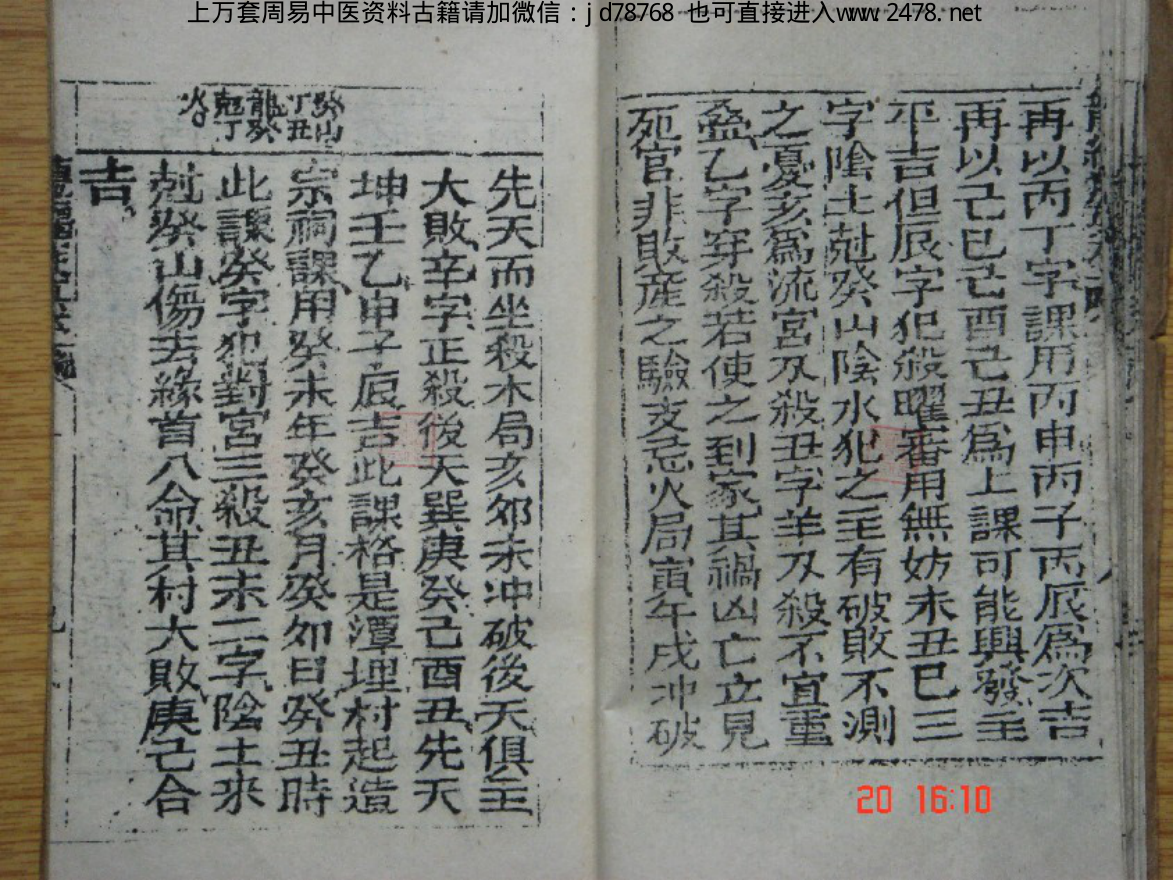 上万套周易中医资料古籍请加微信：jd78768 也可直接进入www.2478.net
再以丙丁字課用丙申丙子丙辰為次吉
再以己巳己酉己丑為上課可能興發主
平吉但辰字犯殺曜番用無妨未丑巳三
字陰土尅癸山陰水犯之主有破敗不測
之憂亥為流宮刃殺丑字羊刃殺不宜重
叠乙字穿殺若使之到家其禍凶亡立見
死官非敗產之驗支忌火局寅午戌冲破
先天而坐殺木局亥卯未冲破後天俱主
大敗辛字正殺後天巽庚癸己酉丑先天
坤壬乙申子辰吉此課格是潭埋村起造
宗祠課用癸未年癸亥月癸卯日癸丑時
此課癸字犯對宮三殺丑未二字陰土來
尅癸山傷去緣首八命其村大敗庚己合
吉
癸山
丁丑
龍癸
尅丁
20 16:10